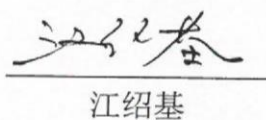 江绍基
江绍基